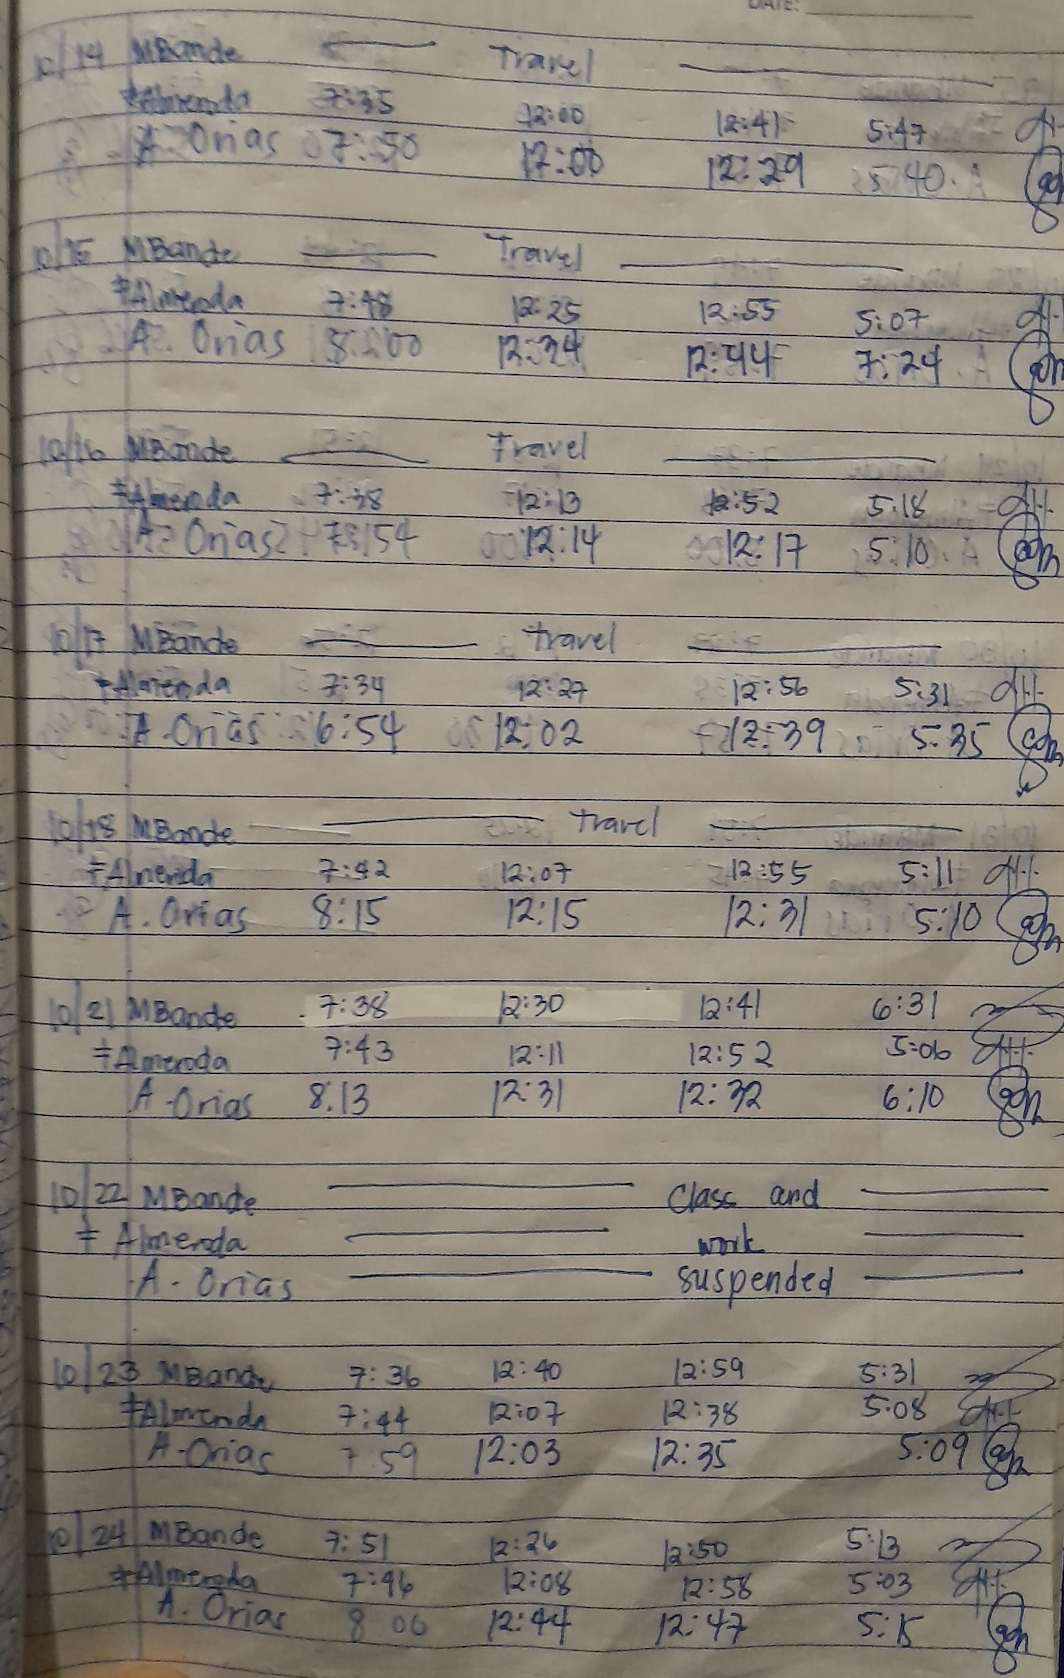 DATE:
10/14 MBande Travel
FAlmeroda 7:35 12:00 12:41 5:47
A. Orias 7:50 12:00 12:29 5:40
10/15 MBande Travel
FAlmeroda 7:48 12:25 12:55 5:07
A. Orias 8:00 12:34 12:44 7:24
10/16 MBande Travel
FAlmeroda 7:38 12:13 12:52 5:18
A. Orias 7:54 12:14 12:17 5:10
10/17 MBande travel
FAlmeroda 7:34 12:27 12:56 5:31
A. Orias 6:54 12:02 12:39 5:35
10/18 MBande travel
FAlmeroda 7:42 12:07 12:55 5:11
A. Orias 8:15 12:15 12:31 5:10
10/21 MBande 7:38 12:30 12:41 6:31
FAlmeroda 7:43 12:11 12:52 5:06
A. Orias 8:13 12:31 12:32 6:10
10/22 MBande Class and
F Almeroda work
A. Orias suspended
10/23 MBande 7:36 12:40 12:59 5:31
FAlmeroda 7:44 12:07 12:38 5:08
A. Orias 7:59 12:03 12:35 5:09
10/24 MBande 7:51 12:26 12:50 5:13
FAlmeroda 7:46 12:08 12:58 5:03
A. Orias 8:00 12:44 12:47 5:15